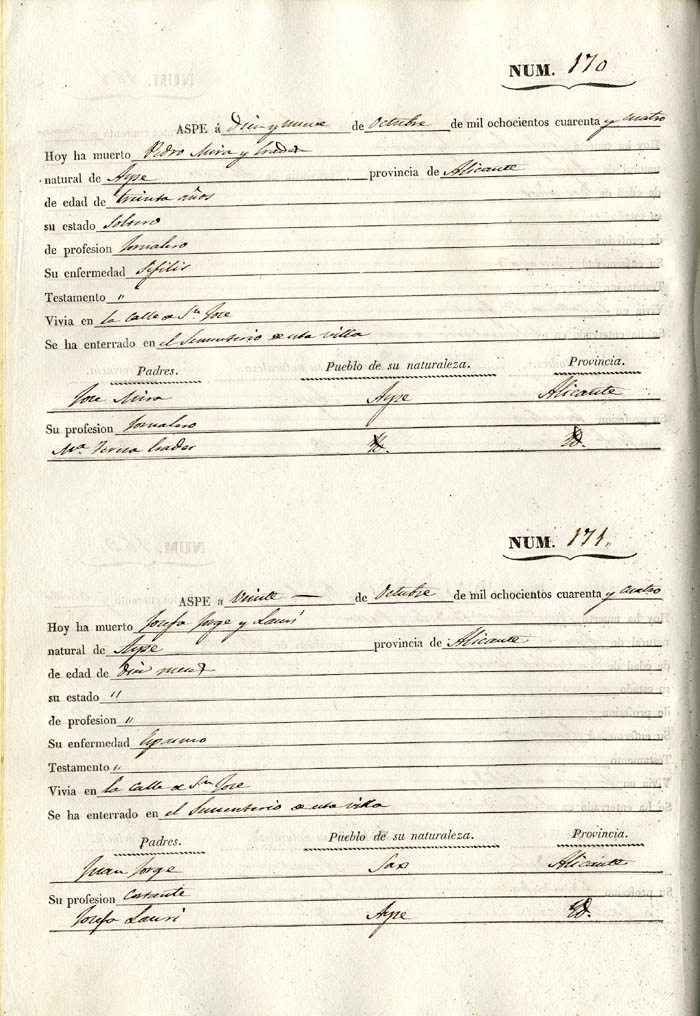 NUM. 170
ASPE á Diez y nueve de Octubre de mil ochocientos cuarenta y cuatro
Hoy ha muerto Pedro Mira y
natural de Aspe provincia de Alicante
de edad de treinta años
su estado Soltero
de profesion Jornalero
Su enfermedad Sifilis
Testamento "
Vivia en la Calle de Sn. Jose
Se ha enterrado en el Sementerio de esta villa
Padres. Pueblo de su naturaleza. Provincia.
Jose Mira Aspe Alicante
Su profesion Jornalero
Ma. Teresa Id. Id.
NUM. 171.
ASPE a Veinte — de Octubre de mil ochocientos cuarenta y cuatro
Hoy ha muerto Josefa Jorge y Lauri
natural de Aspe provincia de Alicante
de edad de Diez meses
su estado "
de profesion "
Su enfermedad
Testamento "
Vivia en la Calle de Sn. Jose
Se ha enterrado en el Sementerio de esta villa
Padres. Pueblo de su naturaleza. Provincia.
Juan Jorge Sax Alicante
Su profesion
Josefa Lauri Aspe Id.